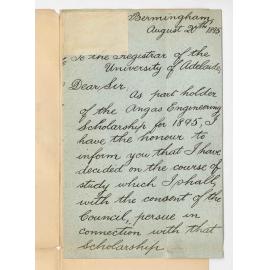 Bermingham,
August 20th 1895
To the Registrar of the
University of Adelaide,
Dear Sir,
As part holder
of the Angas Engineering
Scholarship for 1895, I
have the honour to
inform you that I have
decided on the course of
study which I shall,
with the consent of the
Council, persue in
connection with that
Scholarship